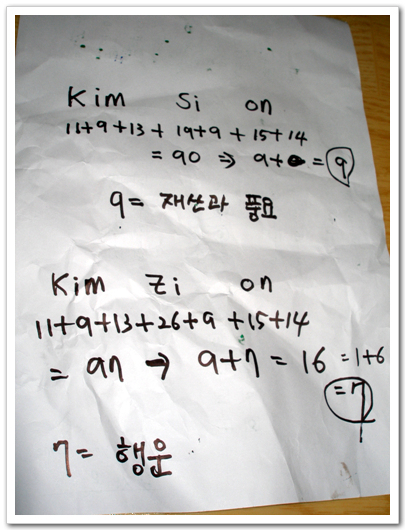 Kim Si on
11+9+13+19+9+15+14
= 90 ⇒ 9+0 = 9
9 = 재산과 풍요
Kim Zi on
11+9+13+26+9+15+14
= 97 → 9+7 = 16 = 1+6
= 7
7 = 행운